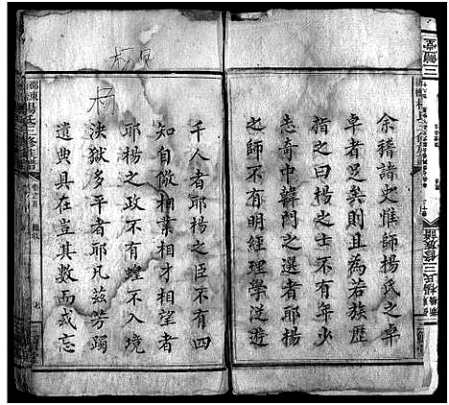 余稽諸史惟師楊氏之卓
卓者足矣則且為若族歷
指之曰楊之士不有年少
志奇中韓門之選者耶楊
之師不有明經理學從遊
千人者耶楊之臣不有四
知自儆相業相才相望者
耶楊之政不有蝗不入境
決獄多平者耶凡茲芳躅
遺典具在豈其數而或忘